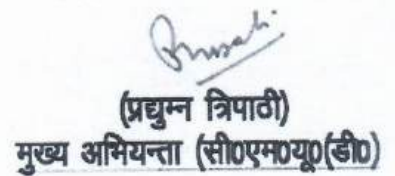 (प्रद्युम्न त्रिपाठी)
मुख्य अभियन्ता (सी0एम0यू0(डी0)